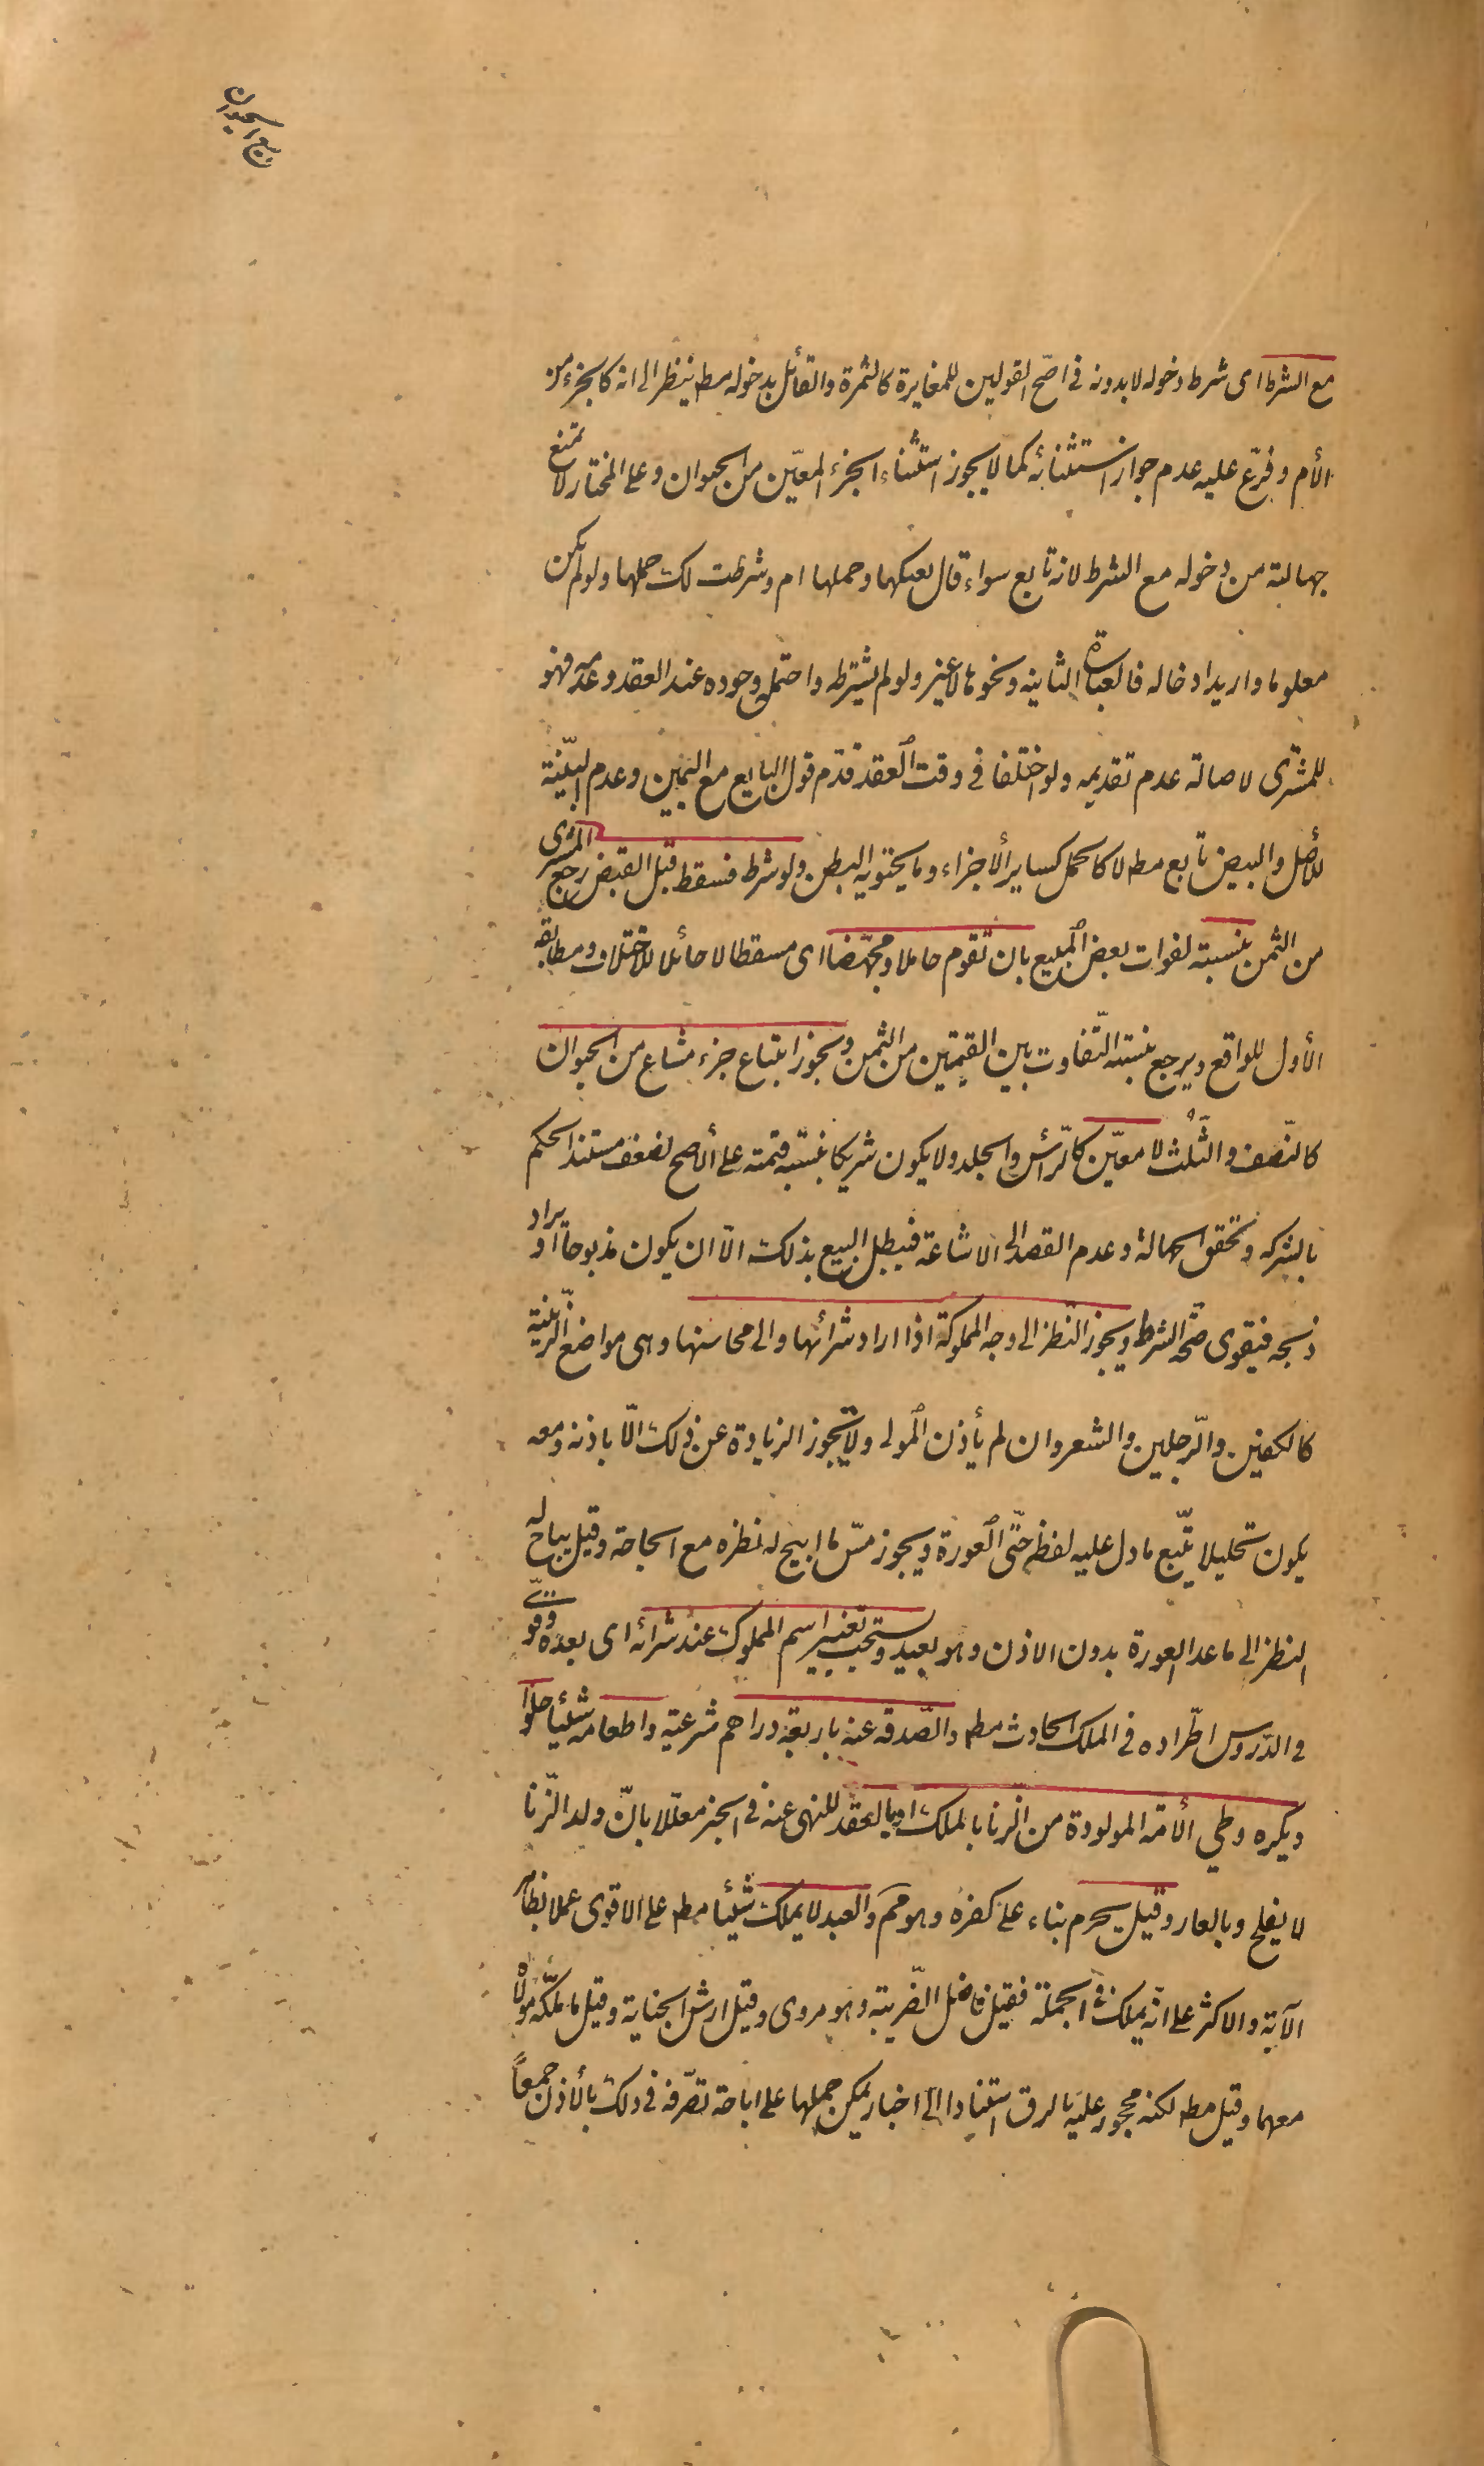 في بيع الحيوان
مع الشرط اى شرط دخوله لا بدونه في اصّح القولين للمغايرة كالثمرة والقائل بدخوله مطم ينظر الى انه كالجزء من
الأم وفرّع عليه عدم جواز استثنائه كما لا يجوز استثناء الجزء المعيّن من الحيوان وعلى المختار لا تمنع
جهالته من دخوله مع الشرط لانه تابع سواء قال بعتكها وحملها ام وشرطت لك حملها ولو لم يكن
معلوما واريد ادخاله فالعبارة الثانيه ونحوها لا غير ولو لم يشترطه واحتمل وجوده عند العقد وعدمه فهو
للمشترى لاصالة عدم تقديمه ولو اختلفا في وقت العقد قدّم قول البايع مع اليمين وعدم البيّنة
للأصل والبيض تابع مطم لا كالحمل كساير الأجزاء وما يحتويه البطن ولو شرط فسقط قبل القبض رجع المشترى
من الثمن بنسبته لفوات بعض المبيع بان تقوم حاملا ومجهّضا اى مسقطا لا حائلا للاختلاف ومطابقة
الأول للواقع ويرجع بنسبة التّفاوت بين القيمتين من الثمن ويجوز ابتياع جزء مشاع من الحيوان
كالنّصف والثّلُث لا معيّن كالرّأس والجلد ولا يكون شريكا بنسبة قيمته على الأصح لضعف مستند الحكم
بالشركه وتحقق الجهالة وعدم القصد الى الاشاعة فيبطل البيع بذلك الّا ان يكون مذبوحا او يراد
ذبحه فيقوى صحّة الشرط ويجوز النّظر الى وجه المملوكة اذا اراد شرائها والى محاسنها وهى مواضع الزّينة
كالكفين والرّجلين والشعر وان لم يأذن المولى ولا تجوز الزيادة عن ذلك الّا باذنه ومعه
يكون تحليلا يتّبع ما دل عليه لفظه حتّى العورة ويجوز مسّ ما ابيح له نظره مع الحاجة وقيل يباح له
النظر الى ما عدا العورة بدون الاذن وهو بعيد ويستحب تغيير اسم المملوك عند شرائه اى بعده وقوىّ
في الدّروس اطّراده في الملك الحادث مطم والصّدقه عنه باربعة دراهم شرعيّة واطعامه شئيا حلوا
ويكره وطي الأمة المولودة من الزّنا بالملك او بالعقد للنهى عنه في الخبر معلّلا بانّ ولد الزّنا
لا يفلح وبالعار وقيل يحرم بناء على كفره وهو مم والعبد لا يملك شئيا مطم على الاقوى عملا بظاهر
الآية والاكثر على انّه يملك في الجملة فقيل فاضل الضّريبة وهو مروى وقيل ارش الجناية وقيل ما يملّكه مولاه
معهما وقيل مطم لكنه محجور عليه بالرق استنادا الى اخبار يمكن حملها على اباحة تصّرفه في ذلك بالأذن جمعاً